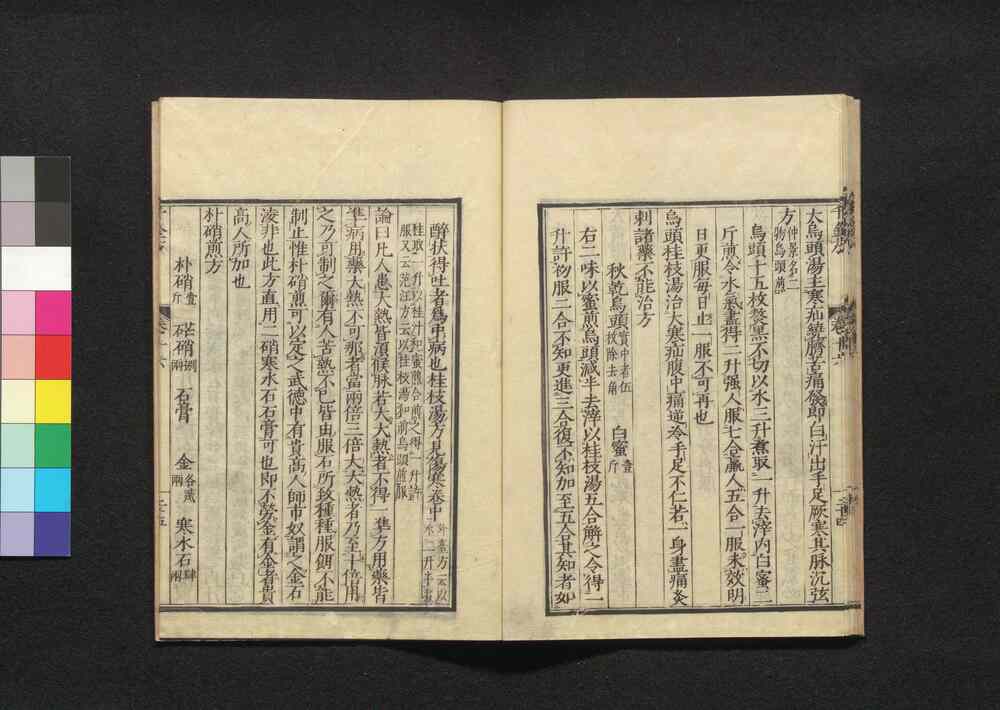 大烏頭湯主寒疝繞臍苦痛發即白汗出手足厥寒其脉沉弦
方仲景名二物烏頭煎
烏頭十五枚熬黑不切以水三升煮取一升去滓內白蜜二
斤煎令水氣盡得二升强人服七合羸人五合一服未效明
日更服每日止一服不可再也
烏頭桂枝湯治大寒疝腹中痛逆冷手足不仁若一身盡痛灸
刺諸藥不能治方
秋乾烏頭實中者伍枚除去角 白蜜壹斤
右二味以蜜煎烏頭減半去滓以桂枝湯五合解之令得一
升許初服二合不知更進三合復不知加至五合其知者如
醉狀得吐者爲中病也桂枝湯方見傷寒卷中
桂取一升以桂汁和蜜煎合煎之得一升許
服又云范汪方云以桂枝湯和前烏頭煎服
論曰凡人患大熱皆須候脉若大大熱者不得一準方用藥皆
準病用藥大熱不可那者當兩倍三倍大大熱者乃至十倍用
之乃可制之爾有人苦熱不已皆由服石所致種種服餌不能
制止惟朴硝煎可以定之武德中有貴高人師市奴謂之金石
凌非也此方直用二硝寒水石石膏可也即不勞金有金者貴
高人所加也
朴硝煎方
朴硝壹斤 硭硝捌兩 石膏 金各貳兩 寒水石肆兩